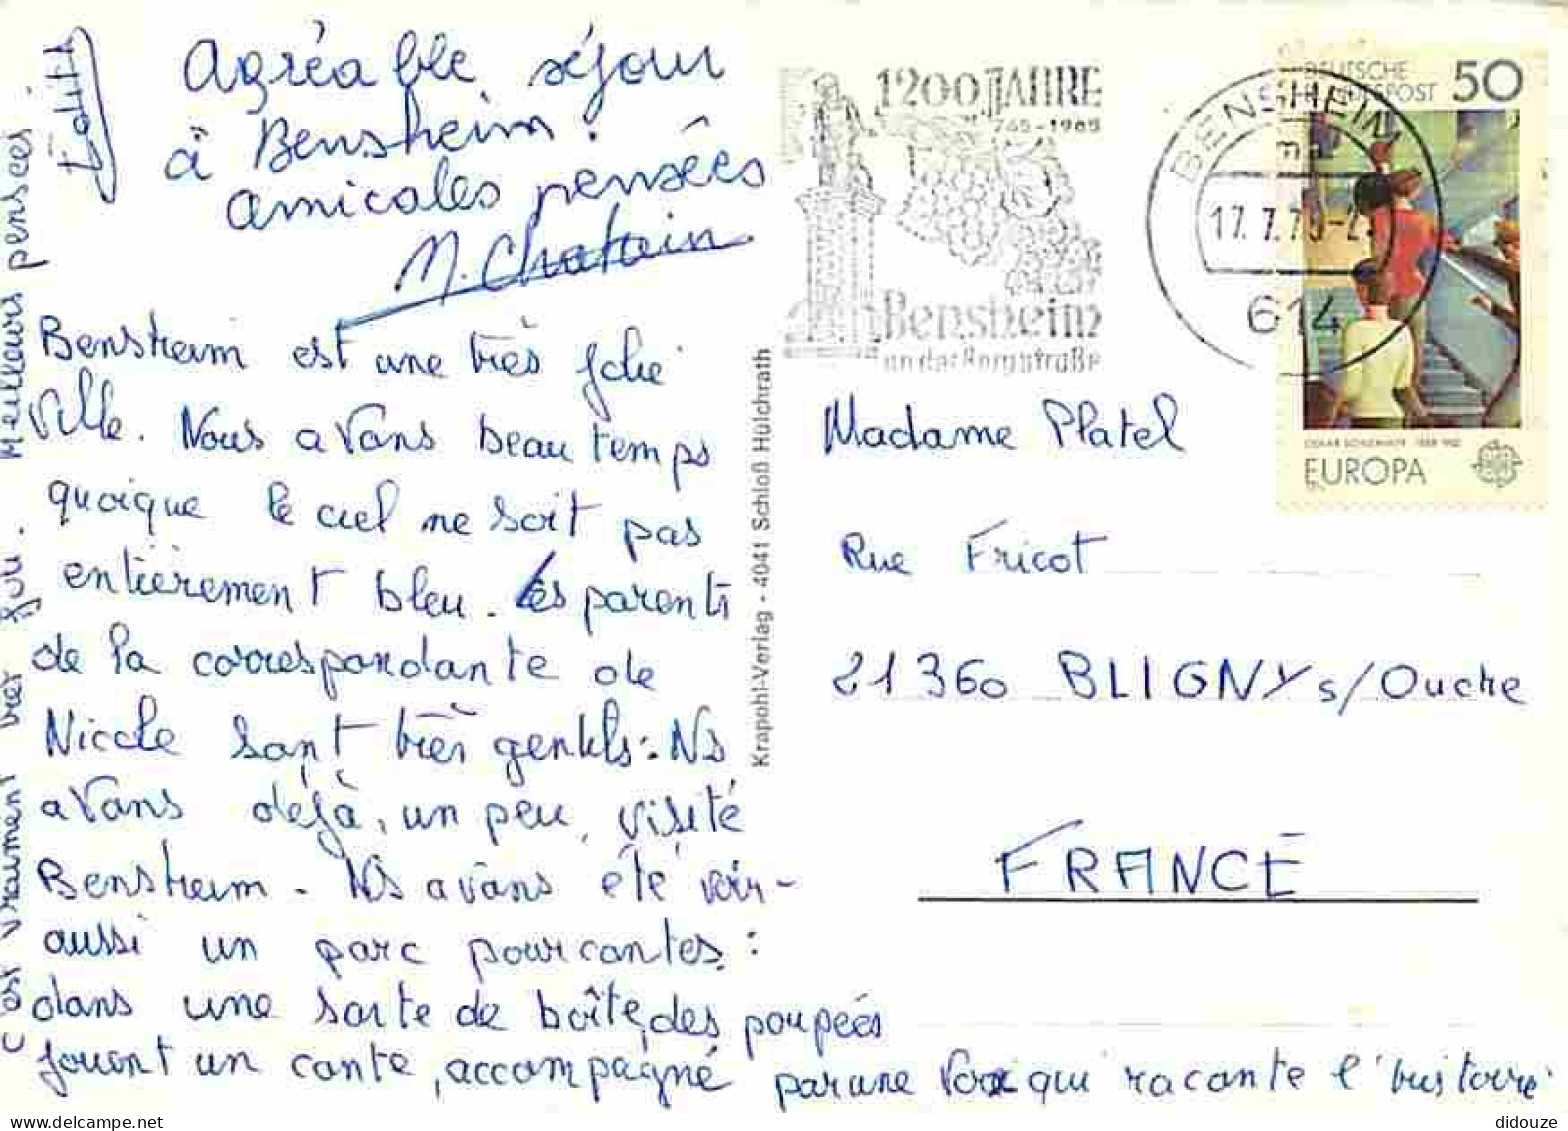 Agréable séjour
à Bensheim.
amicales pensées
M. Chatain
Bensheim est une très jolie
ville. Nous avons beau temps
quoique le ciel ne soit pas
entièrement bleu. Les parents
de la correspondante de
Nicole sont très gentils. Ns
avons déjà, un peu, visité
Bensheim. Ns avons été voir
aussi un parc pour contes :
dans une sorte de boîte, des poupées
jouent un conte, accompagné par une voix qui raconte l'histoire
c'est vraiment très joli. Meilleurs pensées
Edith
Krapohl-Verlag - 4041 Schloß Hülchrath
1200 JAHRE
765-1965
Bensheim
an der Bergstraße
BENSHEIM
17.7.75-2
614
DEUTSCHE
BUNDESPOST 50
OSKAR SCHLEMMER 1888-1943
EUROPA
Madame Platel
Rue Fricot
21360 BLIGNY s/Ouche
FRANCE
delcampe.net
didouze